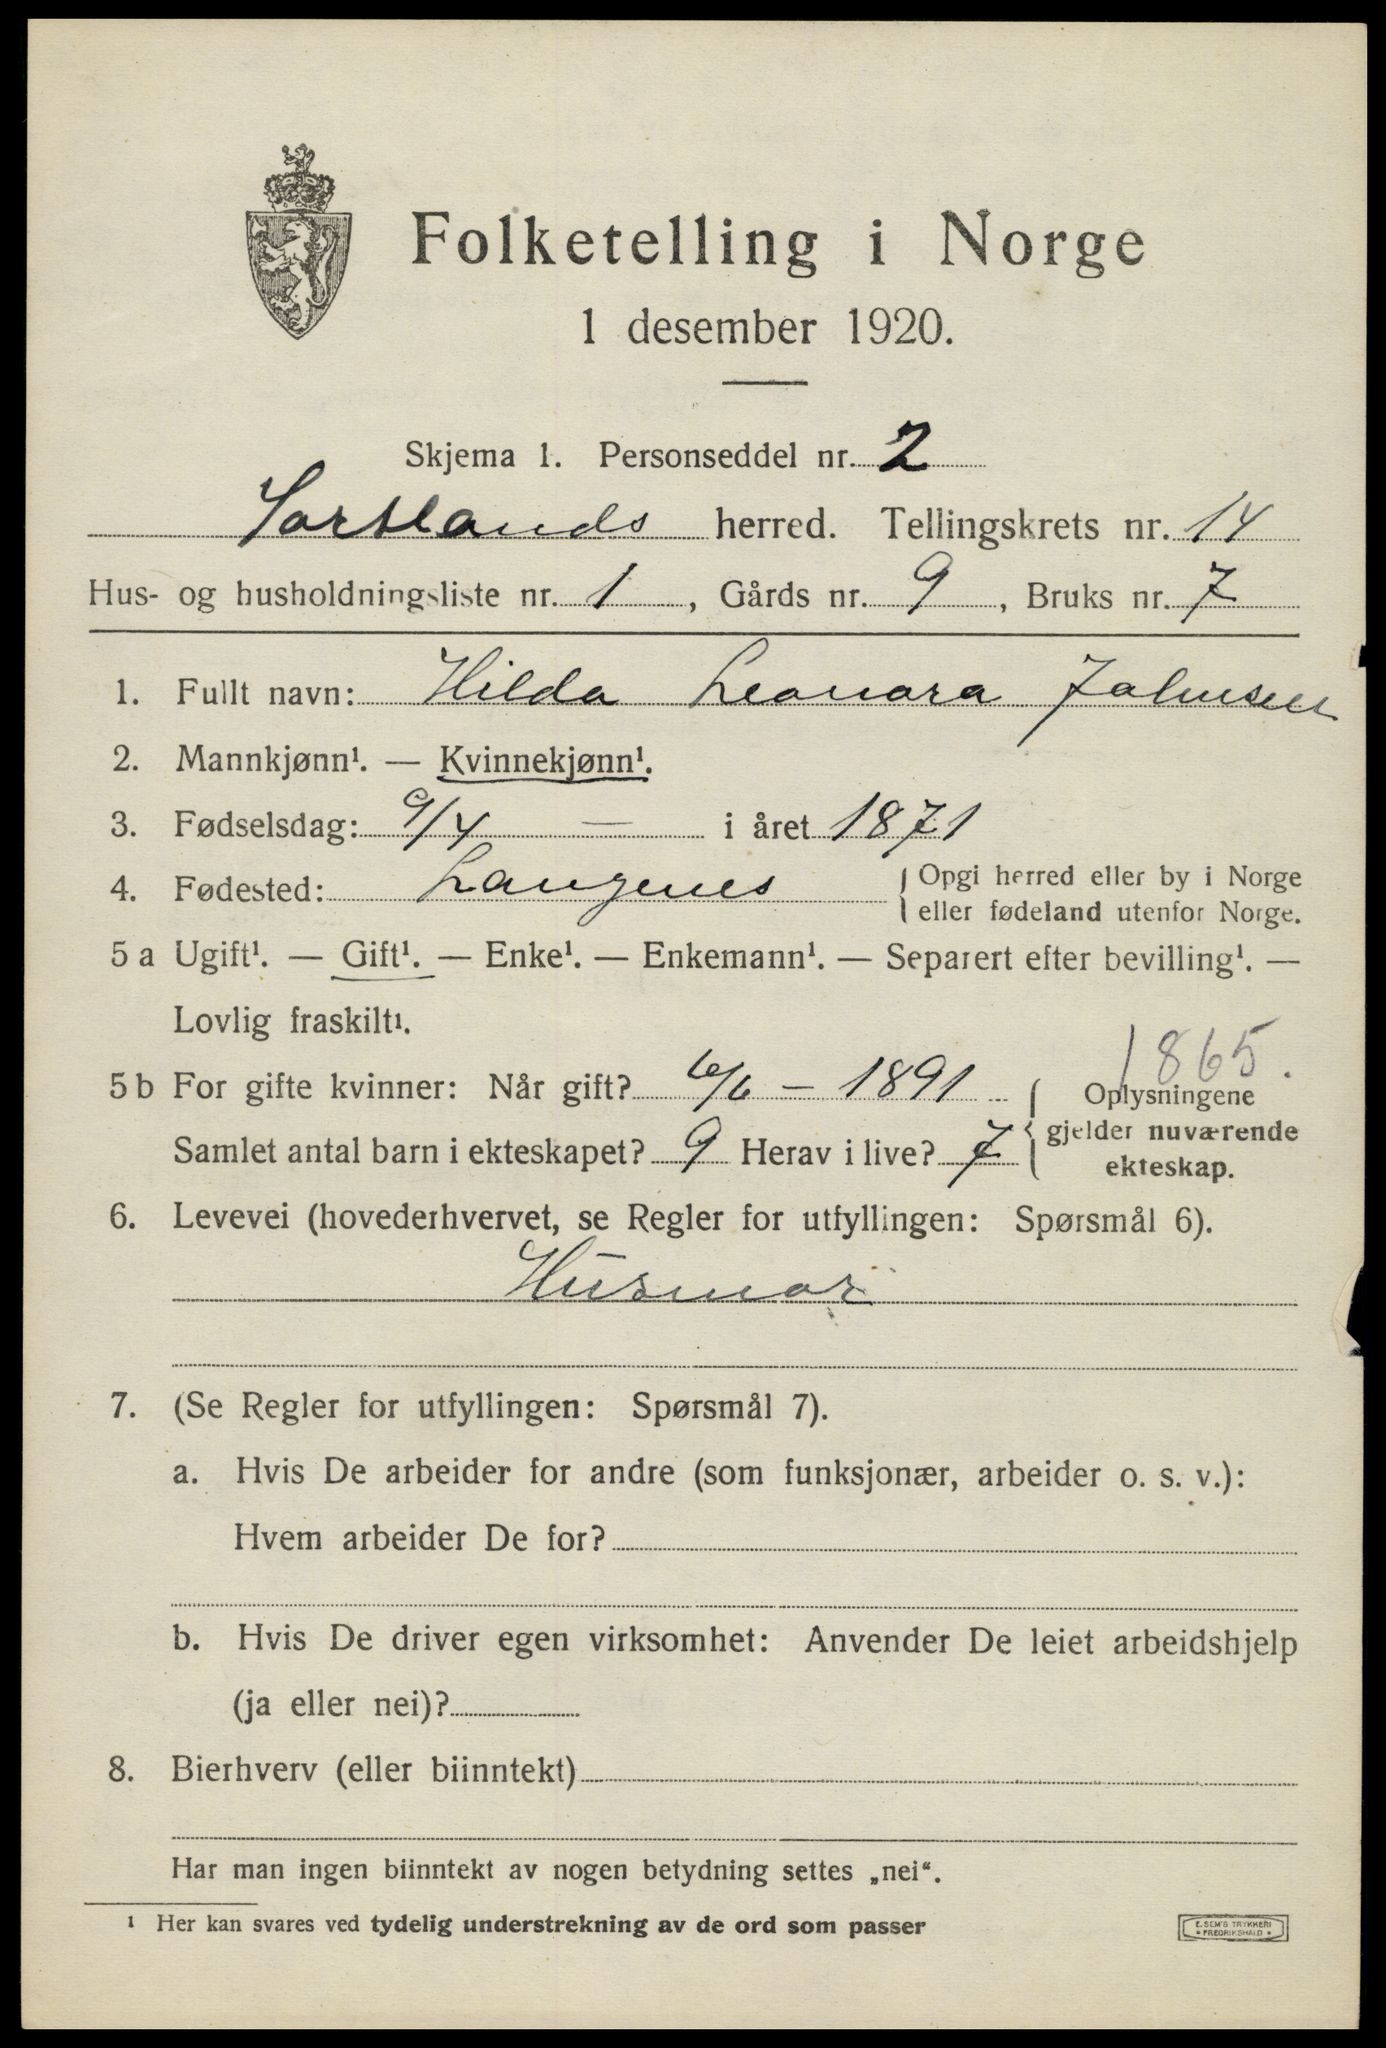 Folketelling i Norge
1 desember 1920.
Skjema 1. Personseddel nr. 2
Sortlands herred. Tellingskrets nr. 14
Hus- og husholdningsliste nr. 1, Gårds nr. 9, Bruks nr. 7
1. Fullt navn: Hilda Leonora Johnsen
2. Mannkjønn¹. — Kvinnekjønn¹.
3. Fødselsdag: 9/4 — i året 1871
4. Fødested: Langenes { Opgi herred eller by i Norge
eller fødeland utenfor Norge.
5 a Ugift¹. — Gift¹. — Enke¹. — Enkemann¹. — Separert efter bevilling¹. —
Lovlig fraskilt¹.
1865.
5 b For gifte kvinner: Når gift? 6/6 – 1891 { Oplysningene
gjelder nuværende
Samlet antal barn i ekteskapet? 9 Herav i live? 7
ekteskap.
6. Levevei (hovederhvervet, se Regler for utfyllingen: Spørsmål 6).
Husmor
7. (Se Regler for utfyllingen: Spørsmål 7).
a. Hvis De arbeider for andre (som funksjonær, arbeider o. s. v.):
Hvem arbeider De for?
b. Hvis De driver egen virksomhet: Anvender De leiet arbeidshjelp
(ja eller nei)?
8. Bierhverv (eller biinntekt)
Har man ingen biinntekt av nogen betydning settes „nei“.
¹ Her kan svares ved tydelig understrekning av de ord som passer
E. SEM'S TRYKKERI
* FREDRIKSHALD *